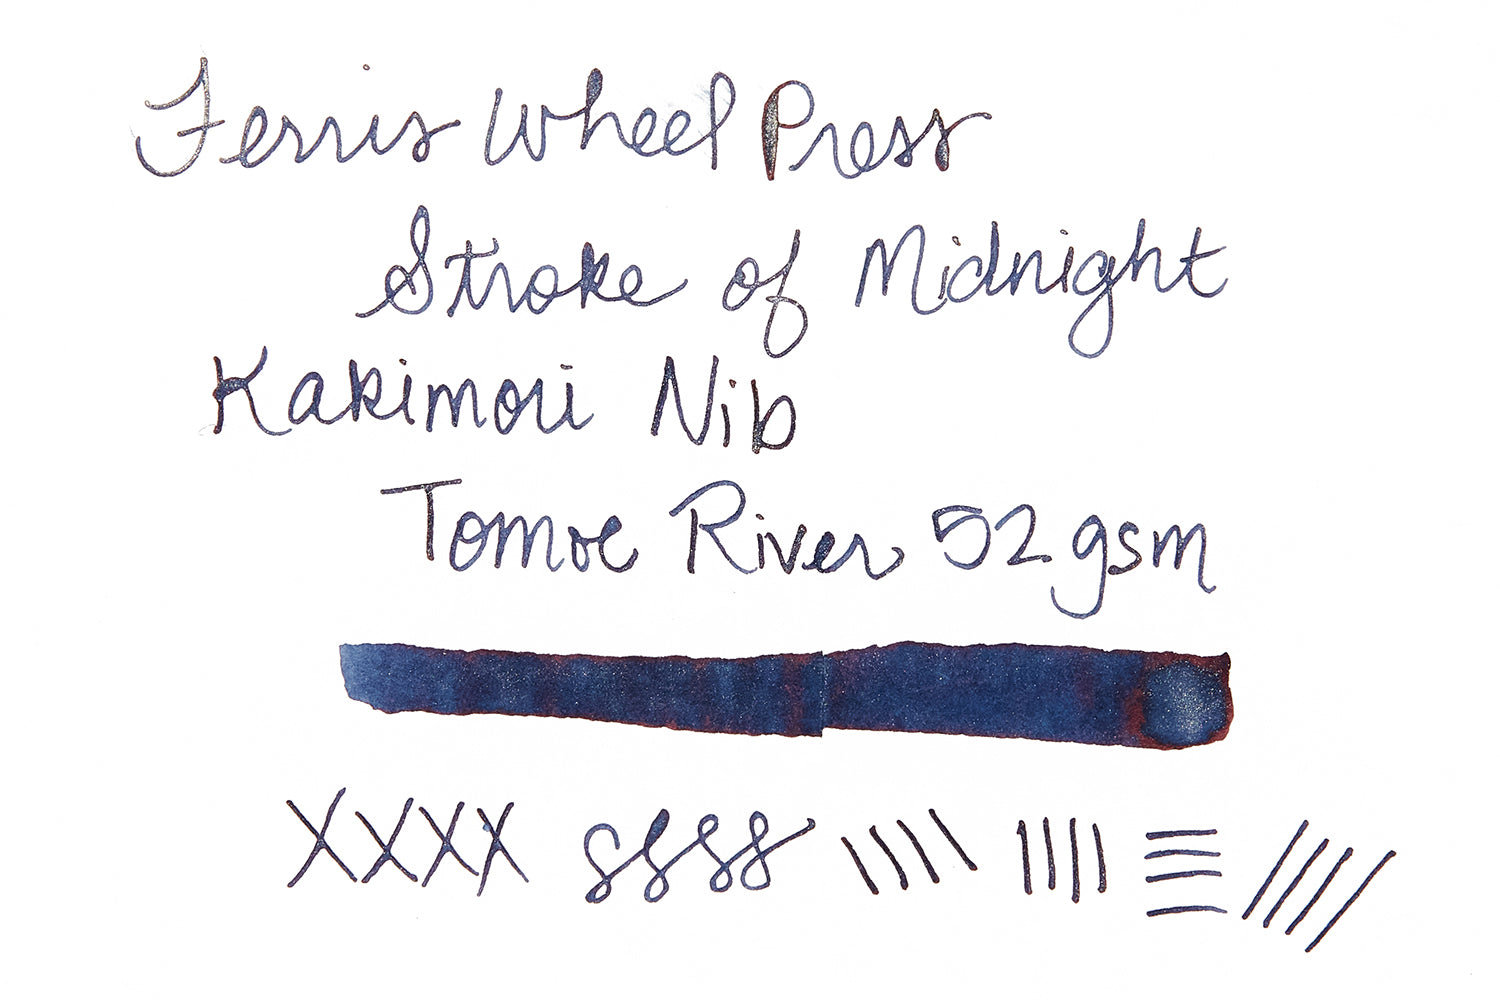 Ferris Wheel Press
Stroke of Midnight
Kakimori Nib
Tomoe River 52 gsm
XXXX ssss